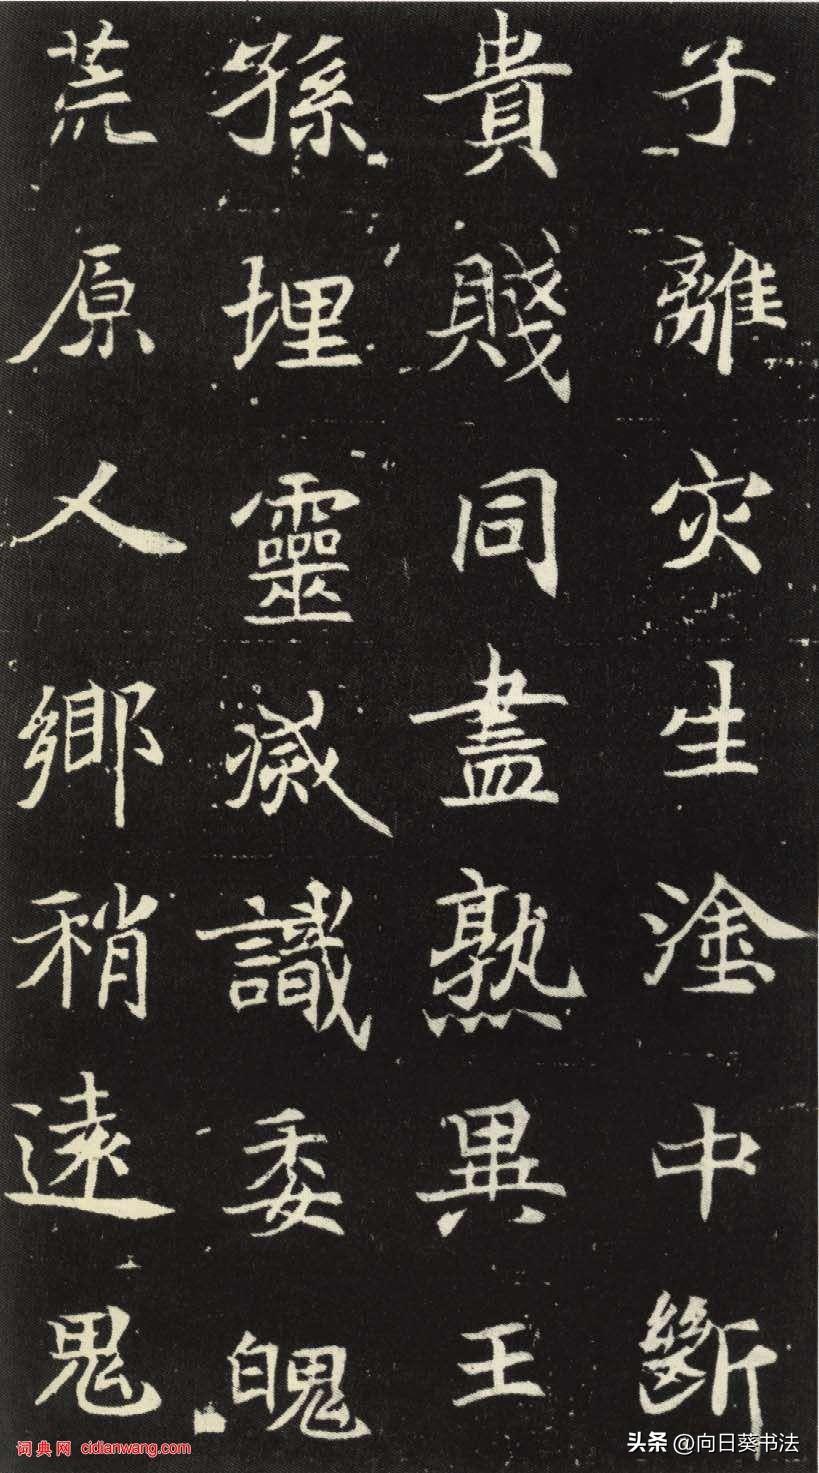 子離灾生塗中斷
貴賤同盡熟異王
孫埋靈滅識委魄
荒原人鄉稍遠鬼
词典网 cidianwang.com
头条 @向日葵书法